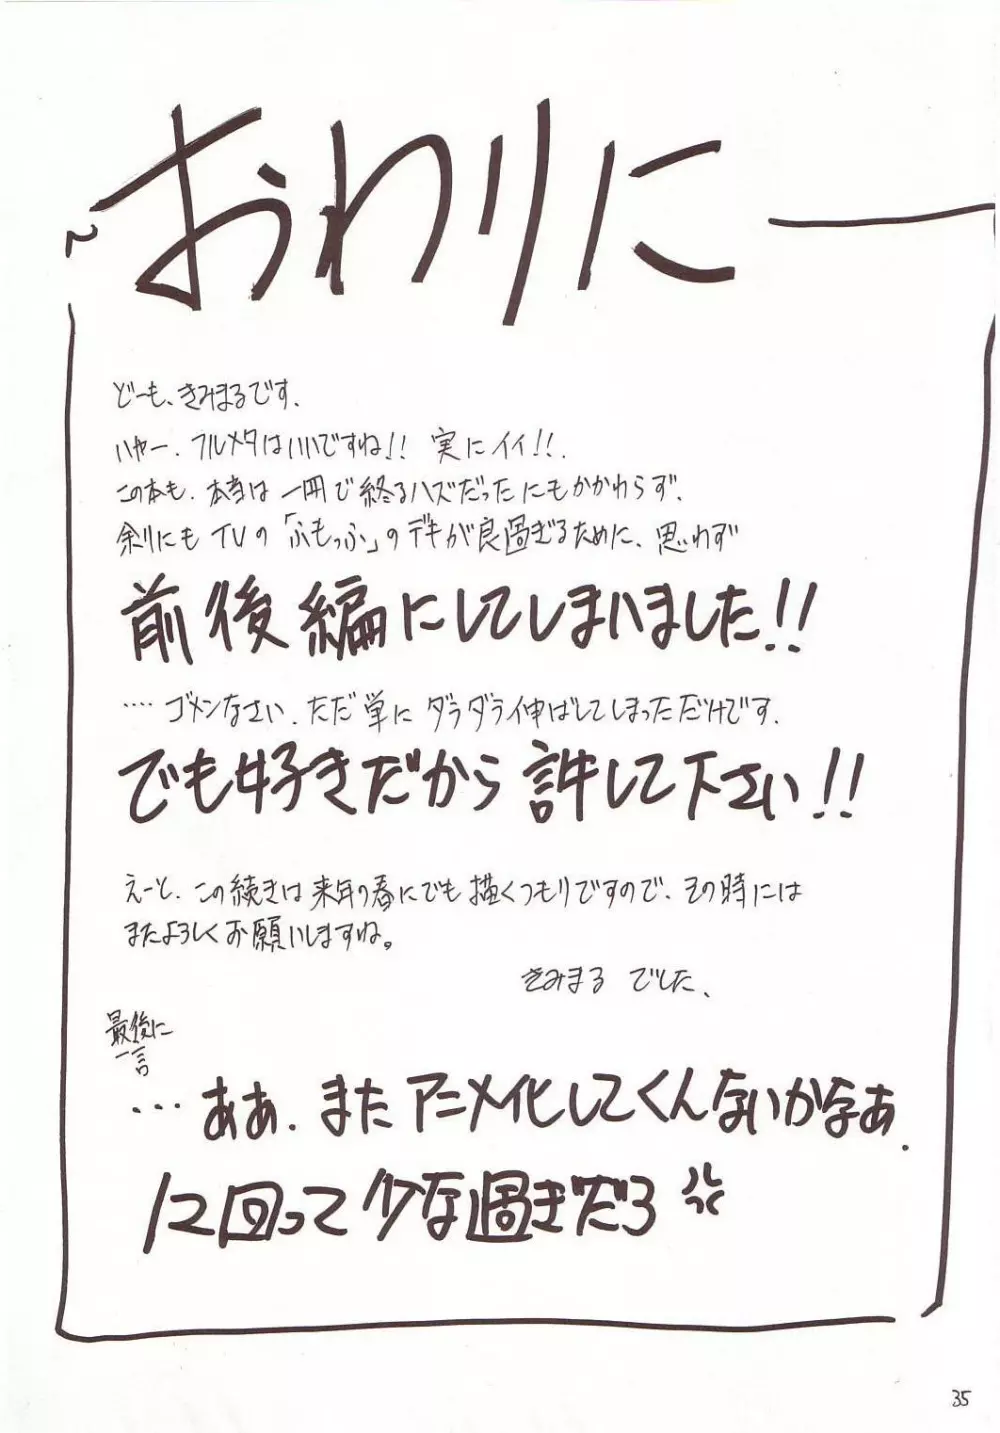 おわりに
どーも、きみまるです.
ハヤー. フルメタはいいですね!! 実にイイ!!.
この本も. 本当は 一冊で終るハズだったにもかかわらず.
余りにも TVの「ふもっふ」のデキが良過ぎるために、思わず
前後編にしてしまいました!!
‥‥ ゴメンなさい. ただ単に ダラダラ伸ばしてしまっただけです.
でも好きだから 許して下さい!!
えーと. この続きは来年の春にでも 描くつもりですので、その時には
またよろしくお願いしますね。
きみまる でした.
最後に
一言
… ああ. また アニメ化してくんないかなあ.
12回って少な過ぎだろ
35